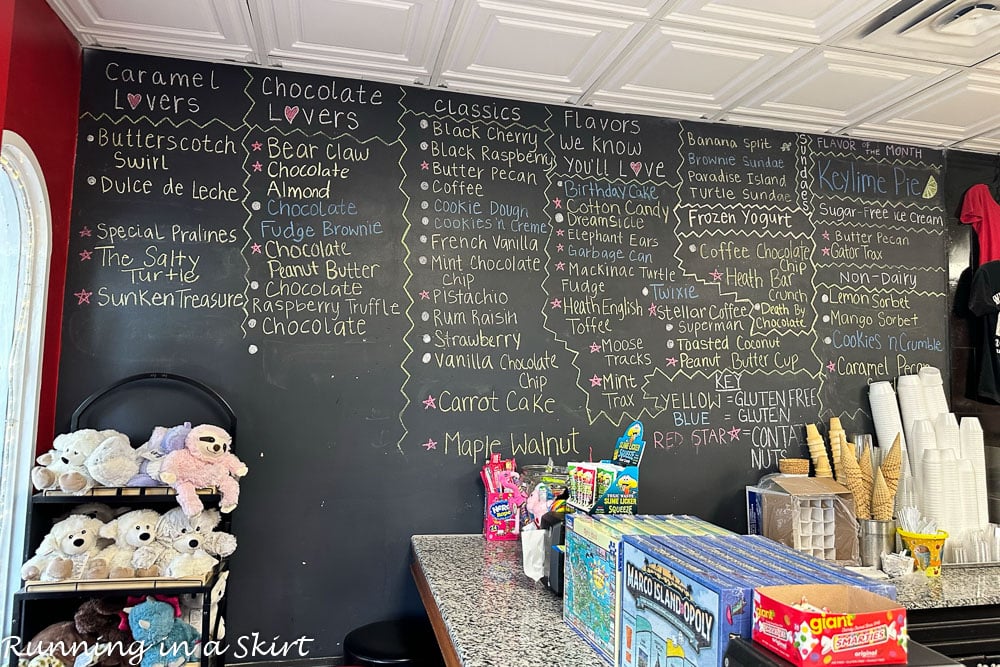 Caramel
Lovers
Butterscotch
Swirl
Dulce de Leche
Special Pralines
The Salty
Turtle
Sunken Treasure
Chocolate
Lovers
Bear Claw
Chocolate
Almond
Chocolate
Fudge Brownie
Chocolate
Peanut Butter
Chocolate
Raspberry Truffle
Chocolate
Classics
Black Cherry
Black Raspberry
Butter Pecan
Coffee
Cookie Dough
Cookies 'n Creme
French Vanilla
Mint Chocolate
Chip
Pistachio
Rum Raisin
Strawberry
Vanilla Chocolate
Chip
Carrot Cake
Maple Walnut
Flavors
We Know
You'll Love
Birthday Cake
Cotton Candy
Dreamsicle
Elephant Ears
Garbage Can
Mackinac Turtle
Fudge
Heath English
Toffee
Moose
Tracks
Mint
Trax
Banana Split
Brownie Sundae
Paradise Island
Turtle Sundae
Sundaes
Frozen Yogurt
Coffee Chocolate
Chip
Heath Bar
Crunch
Twixie
Stellar Coffee
Death By
Chocolate
Superman
Toasted Coconut
Peanut Butter Cup
KEY
YELLOW = GLUTEN FREE
BLUE = GLUTEN
RED STAR =
NUTS
FLAVOR OF THE MONTH
Keylime Pie
Sugar-Free Ice Cream
Butter Pecan
Gator Trax
Non Dairy
Lemon Sorbet
Mango Sorbet
Cookies 'n Crumble
Caramel
Nerds
Rope
TOXIC WASTE
SLIME LICKER
SQUEEZE
MARCO ISLAND-OPOLY
giant
SMARTIES
original
giant
SMARTIES
Running in a Skirt